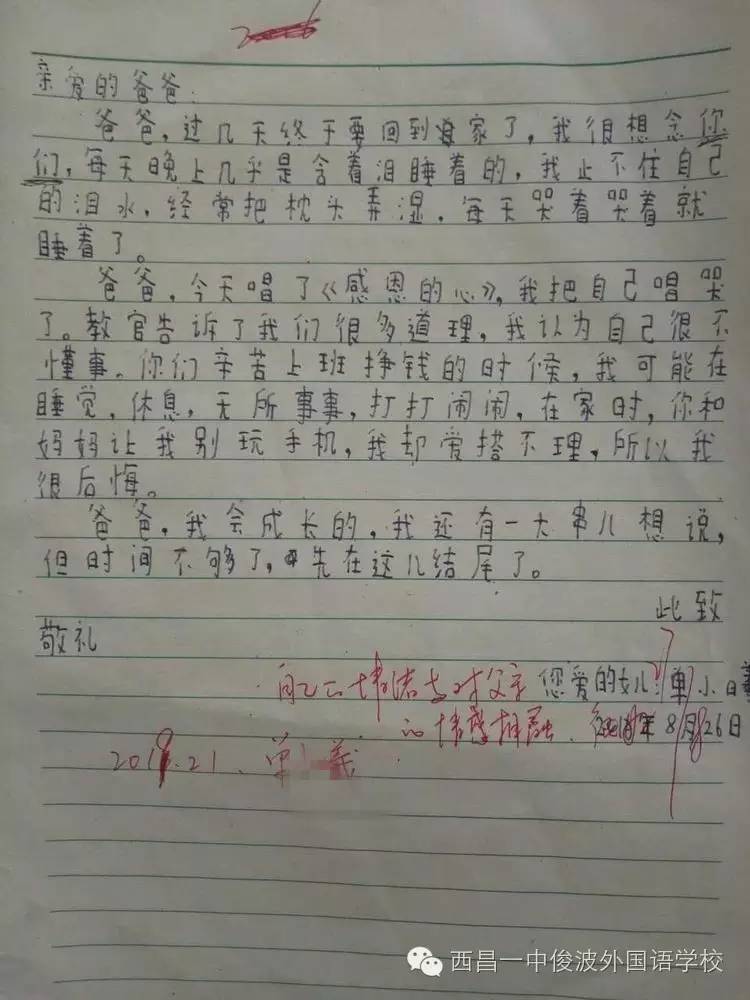 亲爱的爸爸:
爸爸,过几天终于要回到家了,我很想念你
们,每天晚上几乎是含着泪睡着的,我止不住自己
的泪水,经常把枕头弄湿,每天哭着哭着就
睡着了。
爸爸,今天唱了《感恩的心》,我把自己唱哭
了。教官告诉了我们很多道理,我认为自己很不
懂事。你们辛苦上班挣钱的时候,我可能在
睡觉,休息,无所事事,打打闹闹,在家时,你和
妈妈让我别玩手机,我却爱搭不理,所以我
很后悔。
爸爸,我会成长的,我还有一大串儿想说,
但时间不够了,先在这儿结尾了。
此致
敬礼
您爱的女儿:单小
自己的情绪与对父亲
的情感相融.
年8月26日
西昌一中俊波外国语学校